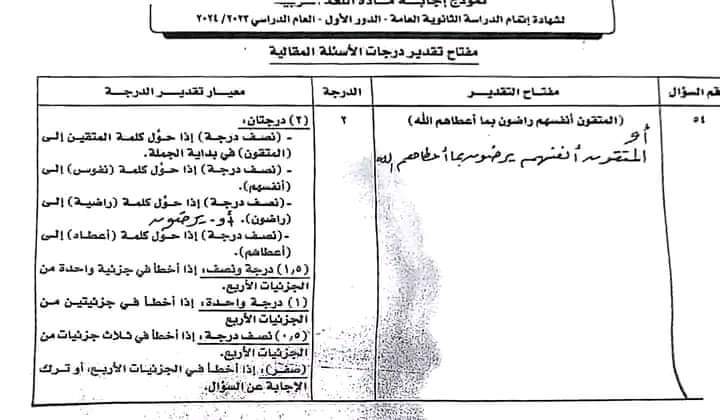 نموذج إجابة مادة اللغة العربية
لشهادة إتمام الدراسة الثانوية العامة - الدور الأول - العام الدراسي ٢٠٢٣/ ٢٠٢٤
مفتاح تقدير درجات الأسئلة المقالية
رقم السؤال
مفتاح التقدير
الدرجة
معيار تقدير الدرجة
٥٤
(المتقون أنفسهم راضون بما أعطاهم الله)
أو
المتقون أنفسهم يرضون بما أعطاهم الله
٢
(٢) درجتان:
- (نصف درجة) إذا حوّل كلمة المتقين إلى
(المتقون) في بداية الجملة.
- (نصف درجة) إذا حوّل كلمة (نفوس) إلى
(أنفسهم).
- (نصف درجة) إذا حوّل كلمة (راضية) إلى
(راضون). أو يرضون
-(نصف درجة) إذا حوّل كلمة (أعطاه) إلى
(أعطاهم).
(١,٥) درجة ونصف: إذا أخطأ في جزئية واحدة من
الجزئيات الأربع.
(١) درجة واحدة: إذا أخطأ في جزئيتين من
الجزئيات الأربع
(٠,٥) نصف درجة: إذا أخطأ في ثلاث جزئيات من
الجزئيات الأربع.
(صفر): إذا أخطأ في الجزئيات الأربع، أو ترك
الإجابة عن السؤال.